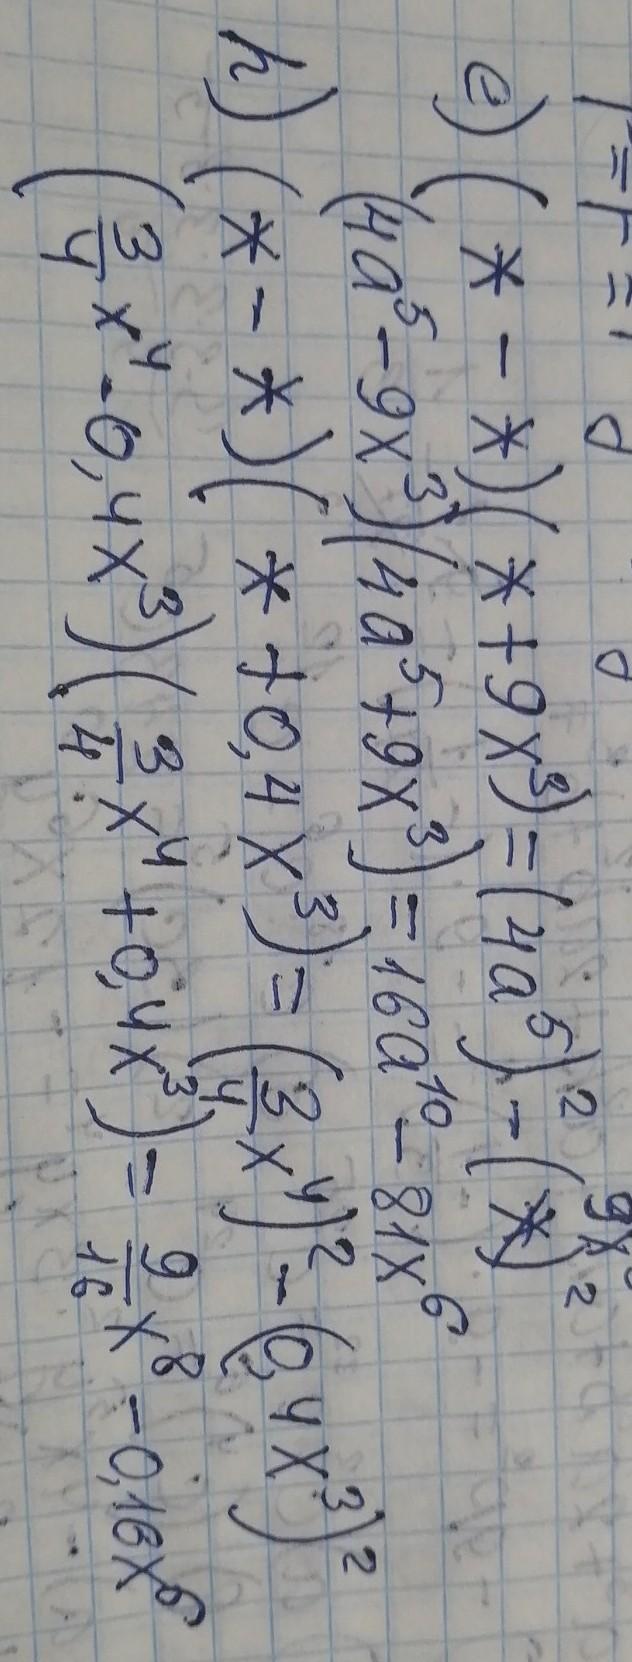 e) (* - *)(* + 9x³) = (4a⁵)² - (*)² 9x
(4a⁵ - 9x³)(4a⁵ + 9x³) = 16a¹⁰ - 81x⁶
h) (* - *)(* + 0,4x³) = (3/4 x⁴)² - (0,4x³)²
(3/4 x⁴ - 0,4x³)(3/4 x⁴ + 0,4x³) = 9/16 x⁸ - 0,16x⁶